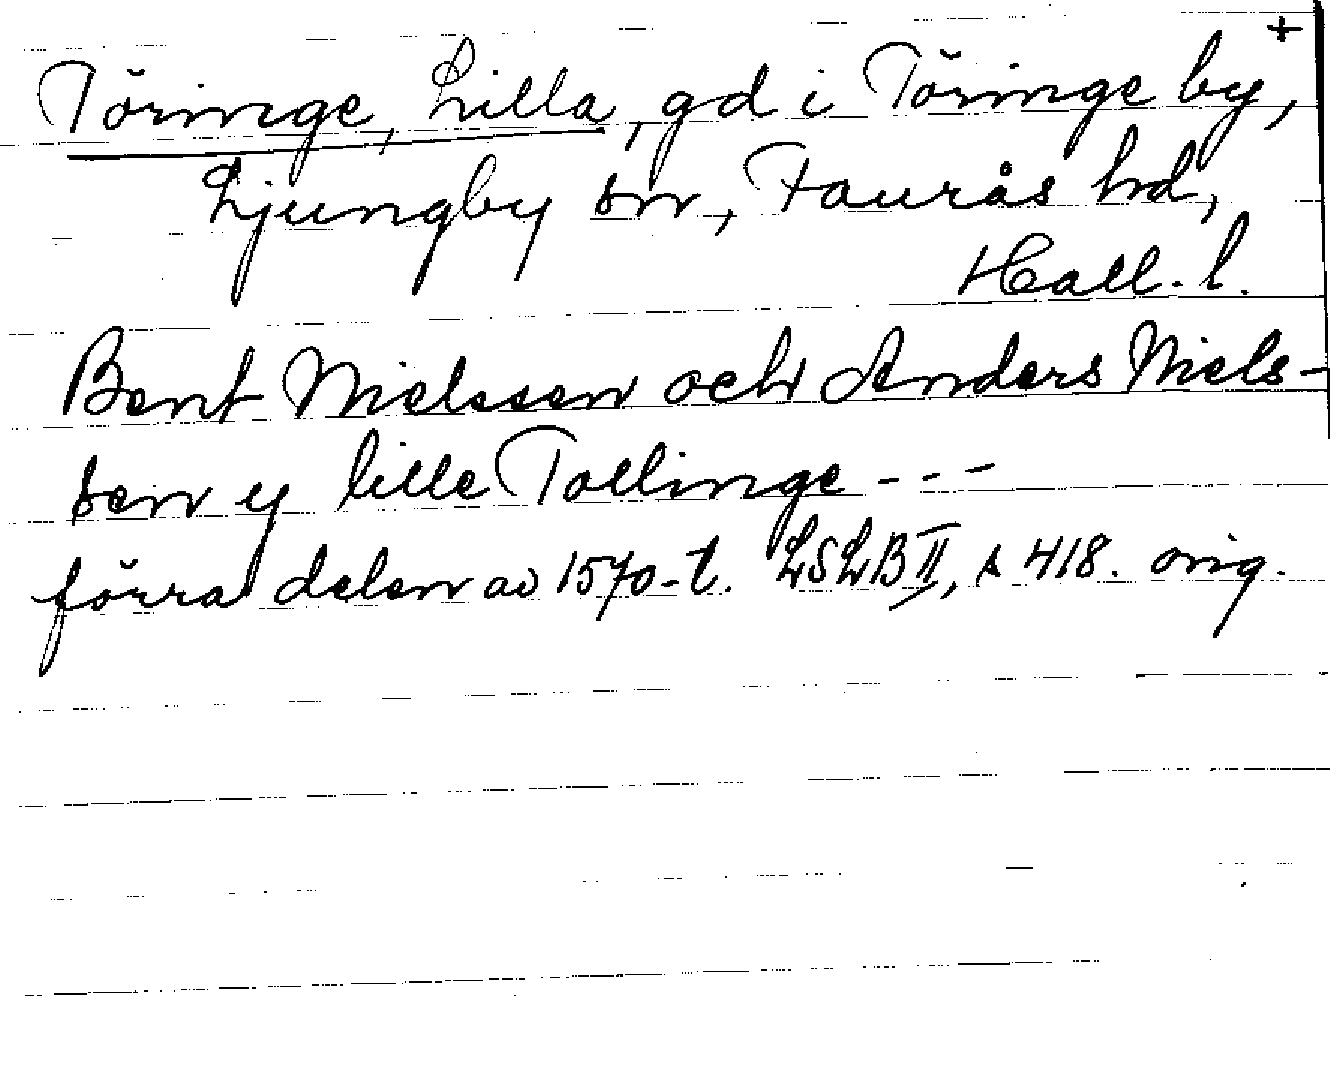 +
Töringe, Lilla, gd i Töringe by,
Ljungby sn, Faurås hd,
Hall. l.
Bent Nielssen och Anders Niels-
sen y lille Tollinge - - -
förra delen av 1570-t. LSLB II, s 418. orig.